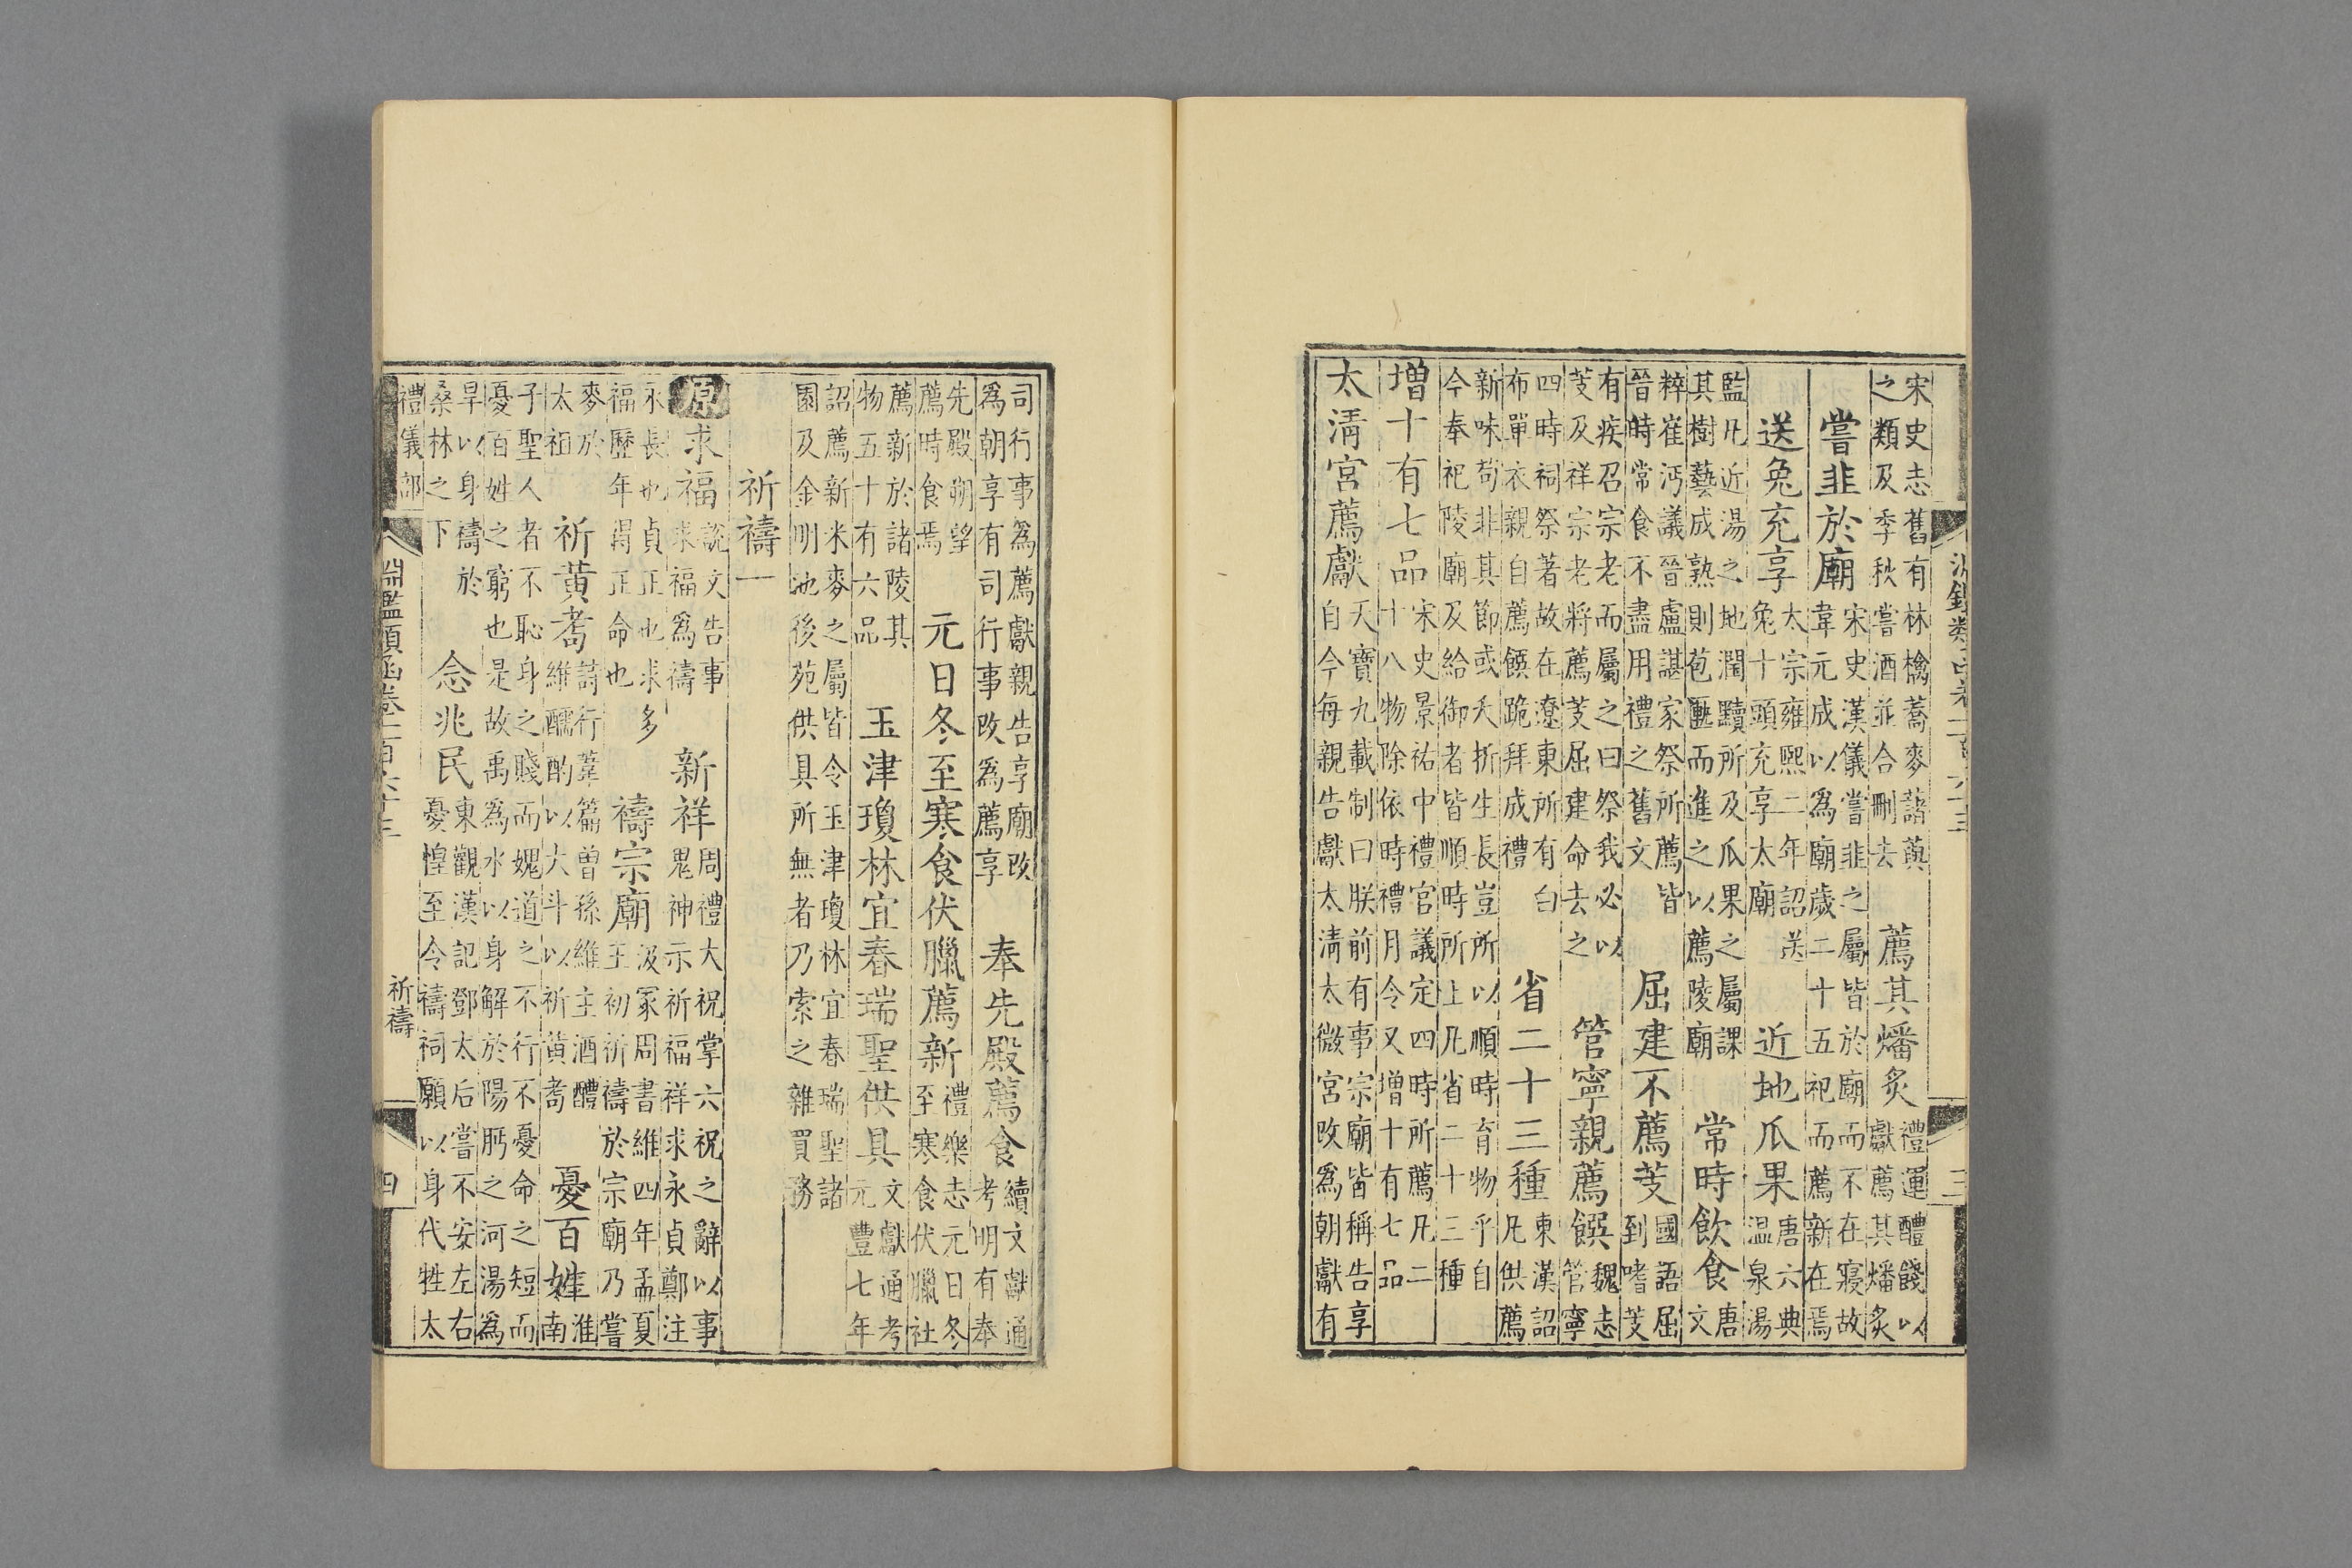 宋史志舊有林檎蕎麥藷蕷之類及季秋嘗酒並合刪去　薦其燔炙禮運醴餞以獻薦其燔炙
嘗韭於廟宋史漢儀嘗韭之屬皆於廟而不在寢故韋元成以爲廟歲二十五祀而薦新在焉
送兔充享太宗雍熙二年詔送兔十頭充享太廟　近地瓜果唐六典温泉湯
監凡近湯之地潤黷所及瓜果之屬課其樹藝成熟則苞匭而進之以薦陵廟　常時飲食唐文
粹崔沔議晉盧諶家祭所薦皆晉時常食不盡用禮之舊文　屈建不薦芰國語屈到嗜芰
有疾召宗老而屬之曰祭我必以芰及祥宗老將薦芰屈建命去之　管寧親薦饌魏志管寧
四時祠祭著故在遼東所有白布單衣親自薦饌跪拜成禮　省二十三種東漢詔凡供薦
新味苟非其節或夭折生長豈所以順時育物乎自今奉祀陵廟及給御者皆順時所上凡省二十三種
增十有七品宋史景祐中禮官議定四時所薦凡二十八物除依時禮月令又增十有七品
太清宮薦獻天寶九載制曰朕前有事宗廟皆稱告享自今每親告獻太清太微宮改爲朝獻有
司行事爲薦獻親告享廟改爲朝享有司行事改爲薦享　奉先殿薦食續文獻通考明有奉
先殿朔望薦時食焉　元日冬至寒食伏臘薦新禮樂志元日冬至寒食伏臘社
薦新於諸陵其物五十有六品　玉津瓊林宜春瑞聖供具文獻通考元豐七年
詔薦新米麥之屬皆令玉津瓊林宜春瑞聖諸園及金明池後苑供具所無者乃索之雜買務
祈禱一
原求福說文告事求福爲禱　新祥周禮大祝掌六祝之辭以事鬼神示祈福祥求永貞鄭注
永長也貞正也求多福歷年得正命也　禱宗廟汲冢周書維四年孟夏王初祈禱於宗廟乃嘗
麥於太祖　祈黃耇詩行葦篇曾孫維主酒醴維醹酌以大斗以祈黃耇　憂百姓淮南
子聖人者不恥身之賤而媿道之不行不憂命之短而憂百姓之窮也是故禹爲水以身解於陽盱之河湯爲
旱以身禱於桑林之下　念兆民東觀漢記鄧太后嘗不安左右憂惶至令禱祠願以身代牲太
淵鑑類函卷一百六十三
禮儀部　祈禱　四